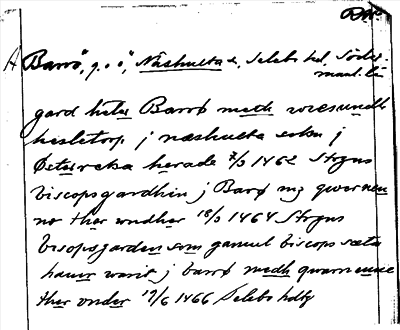 DMS
A Barrö, g. o ö, Näshulta s, Selebo hd, Söder-
manl. län
gard heter Barrö medh wiesundh
hesletorp j næshulta sokn j
Østurekna herade 7/3 1462 Strgns
biscopsgardhin j Barø mz qwernen
no ther wndher 18/3 1464 Strgns
bisopsgarden som gamul biscops sæte
hauer warit j barrö medh qwarnenne
ther vnder 19/6 1466 Selebo hdbg